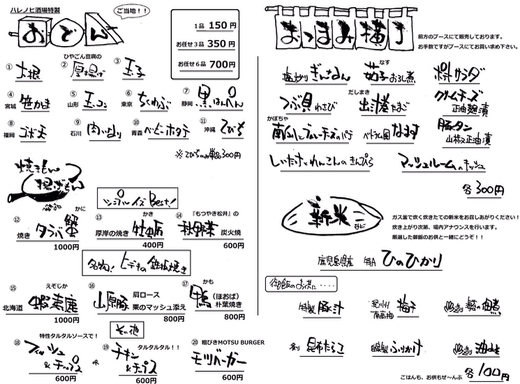 ハレノヒ酒場特製
ご当地!!
おでん
1品 150円
お任せ3品 350円
お任せ6品 700円
① 大根
ひやごい豆腐の
② 厚揚げ
③ 玉子
④ 宮城 笹かま
⑤ 山形 玉こん
⑥ 東京 ちくわぶ
⑦ 静岡 黒はんぺん
⑧ 福岡 ゴボ天
⑨ 石川
⑩ 青森 ベビーホタテ
⑪ 沖縄 てびち
※てびちのみ単品300円
焼きもん
揚げもん
Best!
⑫ 焼き タラバ蟹 かに
1000円
⑬ 厚岸の焼き 牡蠣 かき
400円
⑭ 『もつやき松井』の 秋刀魚 炭火焼
600円
名物! ヒデキの鉄板焼き
⑮ 北海道 蝦夷鹿 えぞしか
1000円
⑯ 山形豚 肩ロース
栗のマッシュ添え
800円
⑰ 鴨 かも (ほおば) 朴葉焼き
800円
その他
⑱ 特性タルタルソースで!
フィッシュ&チップス
600円
or
⑲ タルタルタル!!
チキン&チップス
600円
⑳ 粗びきMOTSU BURGER
モツバーガー
600円
おつまみ横丁
前方のブースにて販売しております。
お手数ですがブースにてお買い求め下さい。
塩炒りぎんなん
茄子おろし煮 なす
ポテトサラダ
つぶ貝わさび
出汁巻たまご だしまき
クリームチーズ
正油麹漬
かぼちゃ
南瓜とブルーチーズのパテ
ベトナム風なます
豚タン
山椒正油漬
しいたけとれんこんのきんぴら
マッシュルームのキッシュ
各300円
新米
ガス釜で炊く炊きたての新米をお召しあがりください!
炊き上がり次第、場内アナウンスを行います。
厳選した御飯のお供と一緒にどうぞ!!
広島県産 ひのひかり
御飯のお供に・・・・
特製 豚汁
紀州 梅干
昆布たらこ
ふりかけ
各100円
ごはんも、お供もぜ〜んぶ